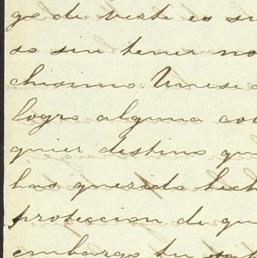 ge de viste es su
so sin tener no
chisimo. Unese a
logro alguna co
quier destino qu
has querido hech
proteccion de qu
embargo tu